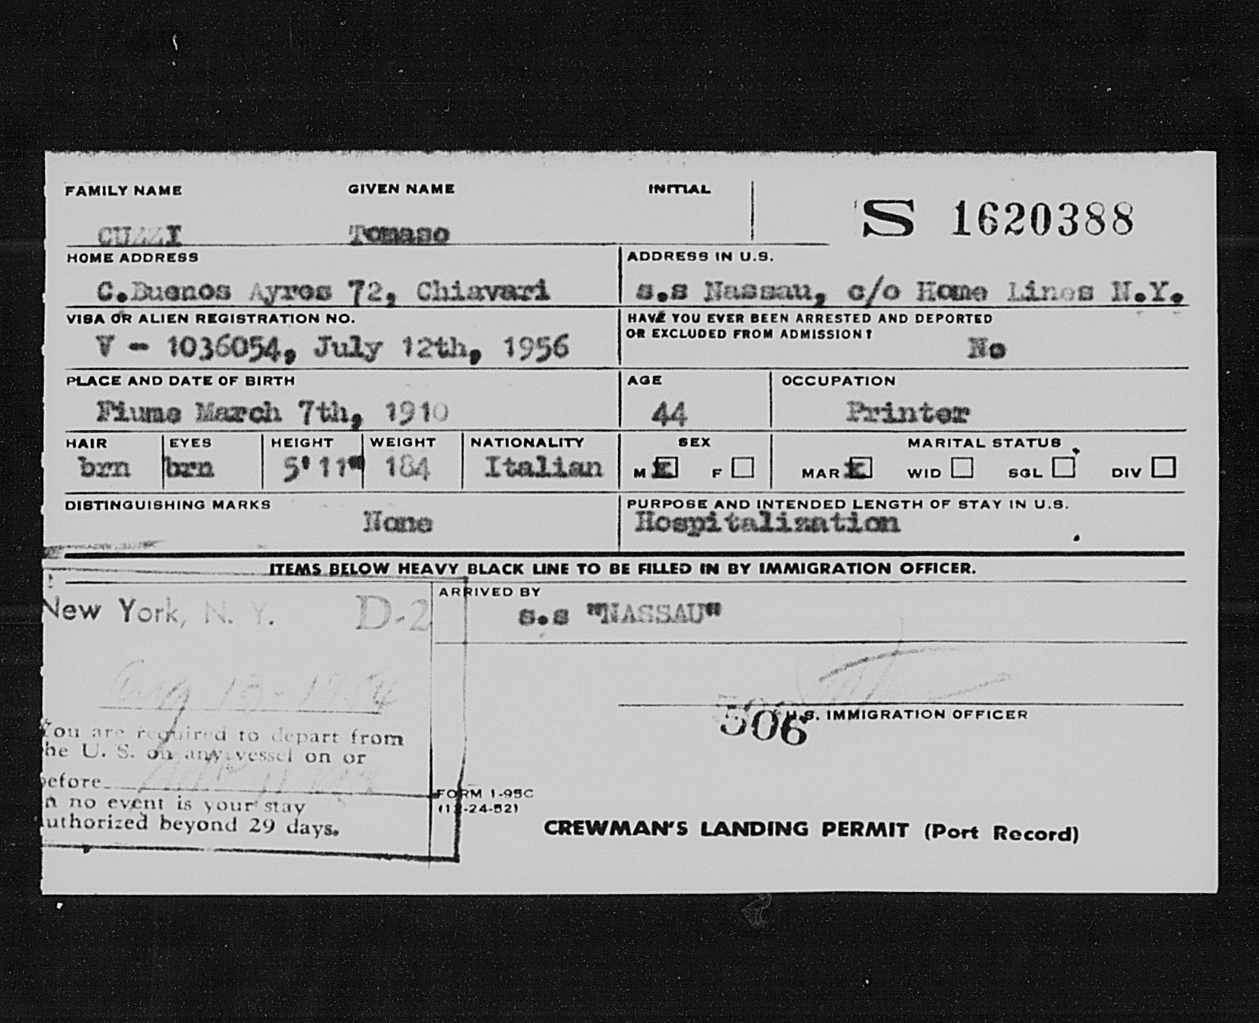 FAMILY NAME GIVEN NAME INITIAL
CUZZI Tomaso S 1620388
HOME ADDRESS ADDRESS IN U.S.
C.Buenos Ayres 72, Chiavari s.s Nassau, c/o Home Lines N.Y.
VISA OR ALIEN REGISTRATION NO. HAVE YOU EVER BEEN ARRESTED AND DEPORTED
OR EXCLUDED FROM ADMISSION?
V - 1036054, July 12th, 1956 No
PLACE AND DATE OF BIRTH AGE OCCUPATION
Fiume March 7th, 1910 44 Printer
HAIR EYES HEIGHT WEIGHT NATIONALITY SEX MARITAL STATUS
brn brn 5'11" 184 Italian M x F MAR x WID SGL DIV
DISTINGUISHING MARKS PURPOSE AND INTENDED LENGTH OF STAY IN U.S.
None Hospitalization
ITEMS BELOW HEAVY BLACK LINE TO BE FILLED IN BY IMMIGRATION OFFICER.
ARRIVED BY
New York, N. Y. D-2 s.s "NASSAU"
Aug 13-1954
506 U.S. IMMIGRATION OFFICER
You are required to depart from
the U. S. on any vessel on or
before
In no event is your stay
authorized beyond 29 days.
FORM I-95C
(12-24-52)
CREWMAN'S LANDING PERMIT (Port Record)